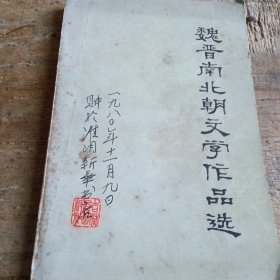 魏晋南北朝文学作品选
一九八〇年十一月九日
购於淮阴新华书店